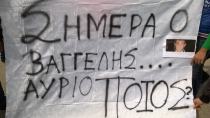 ΣΗΜΕΡΑ Ο
ΒΑΓΓΕΛΗΣ....
ΑΥΡΙΟ ΠΟΙΟΣ?